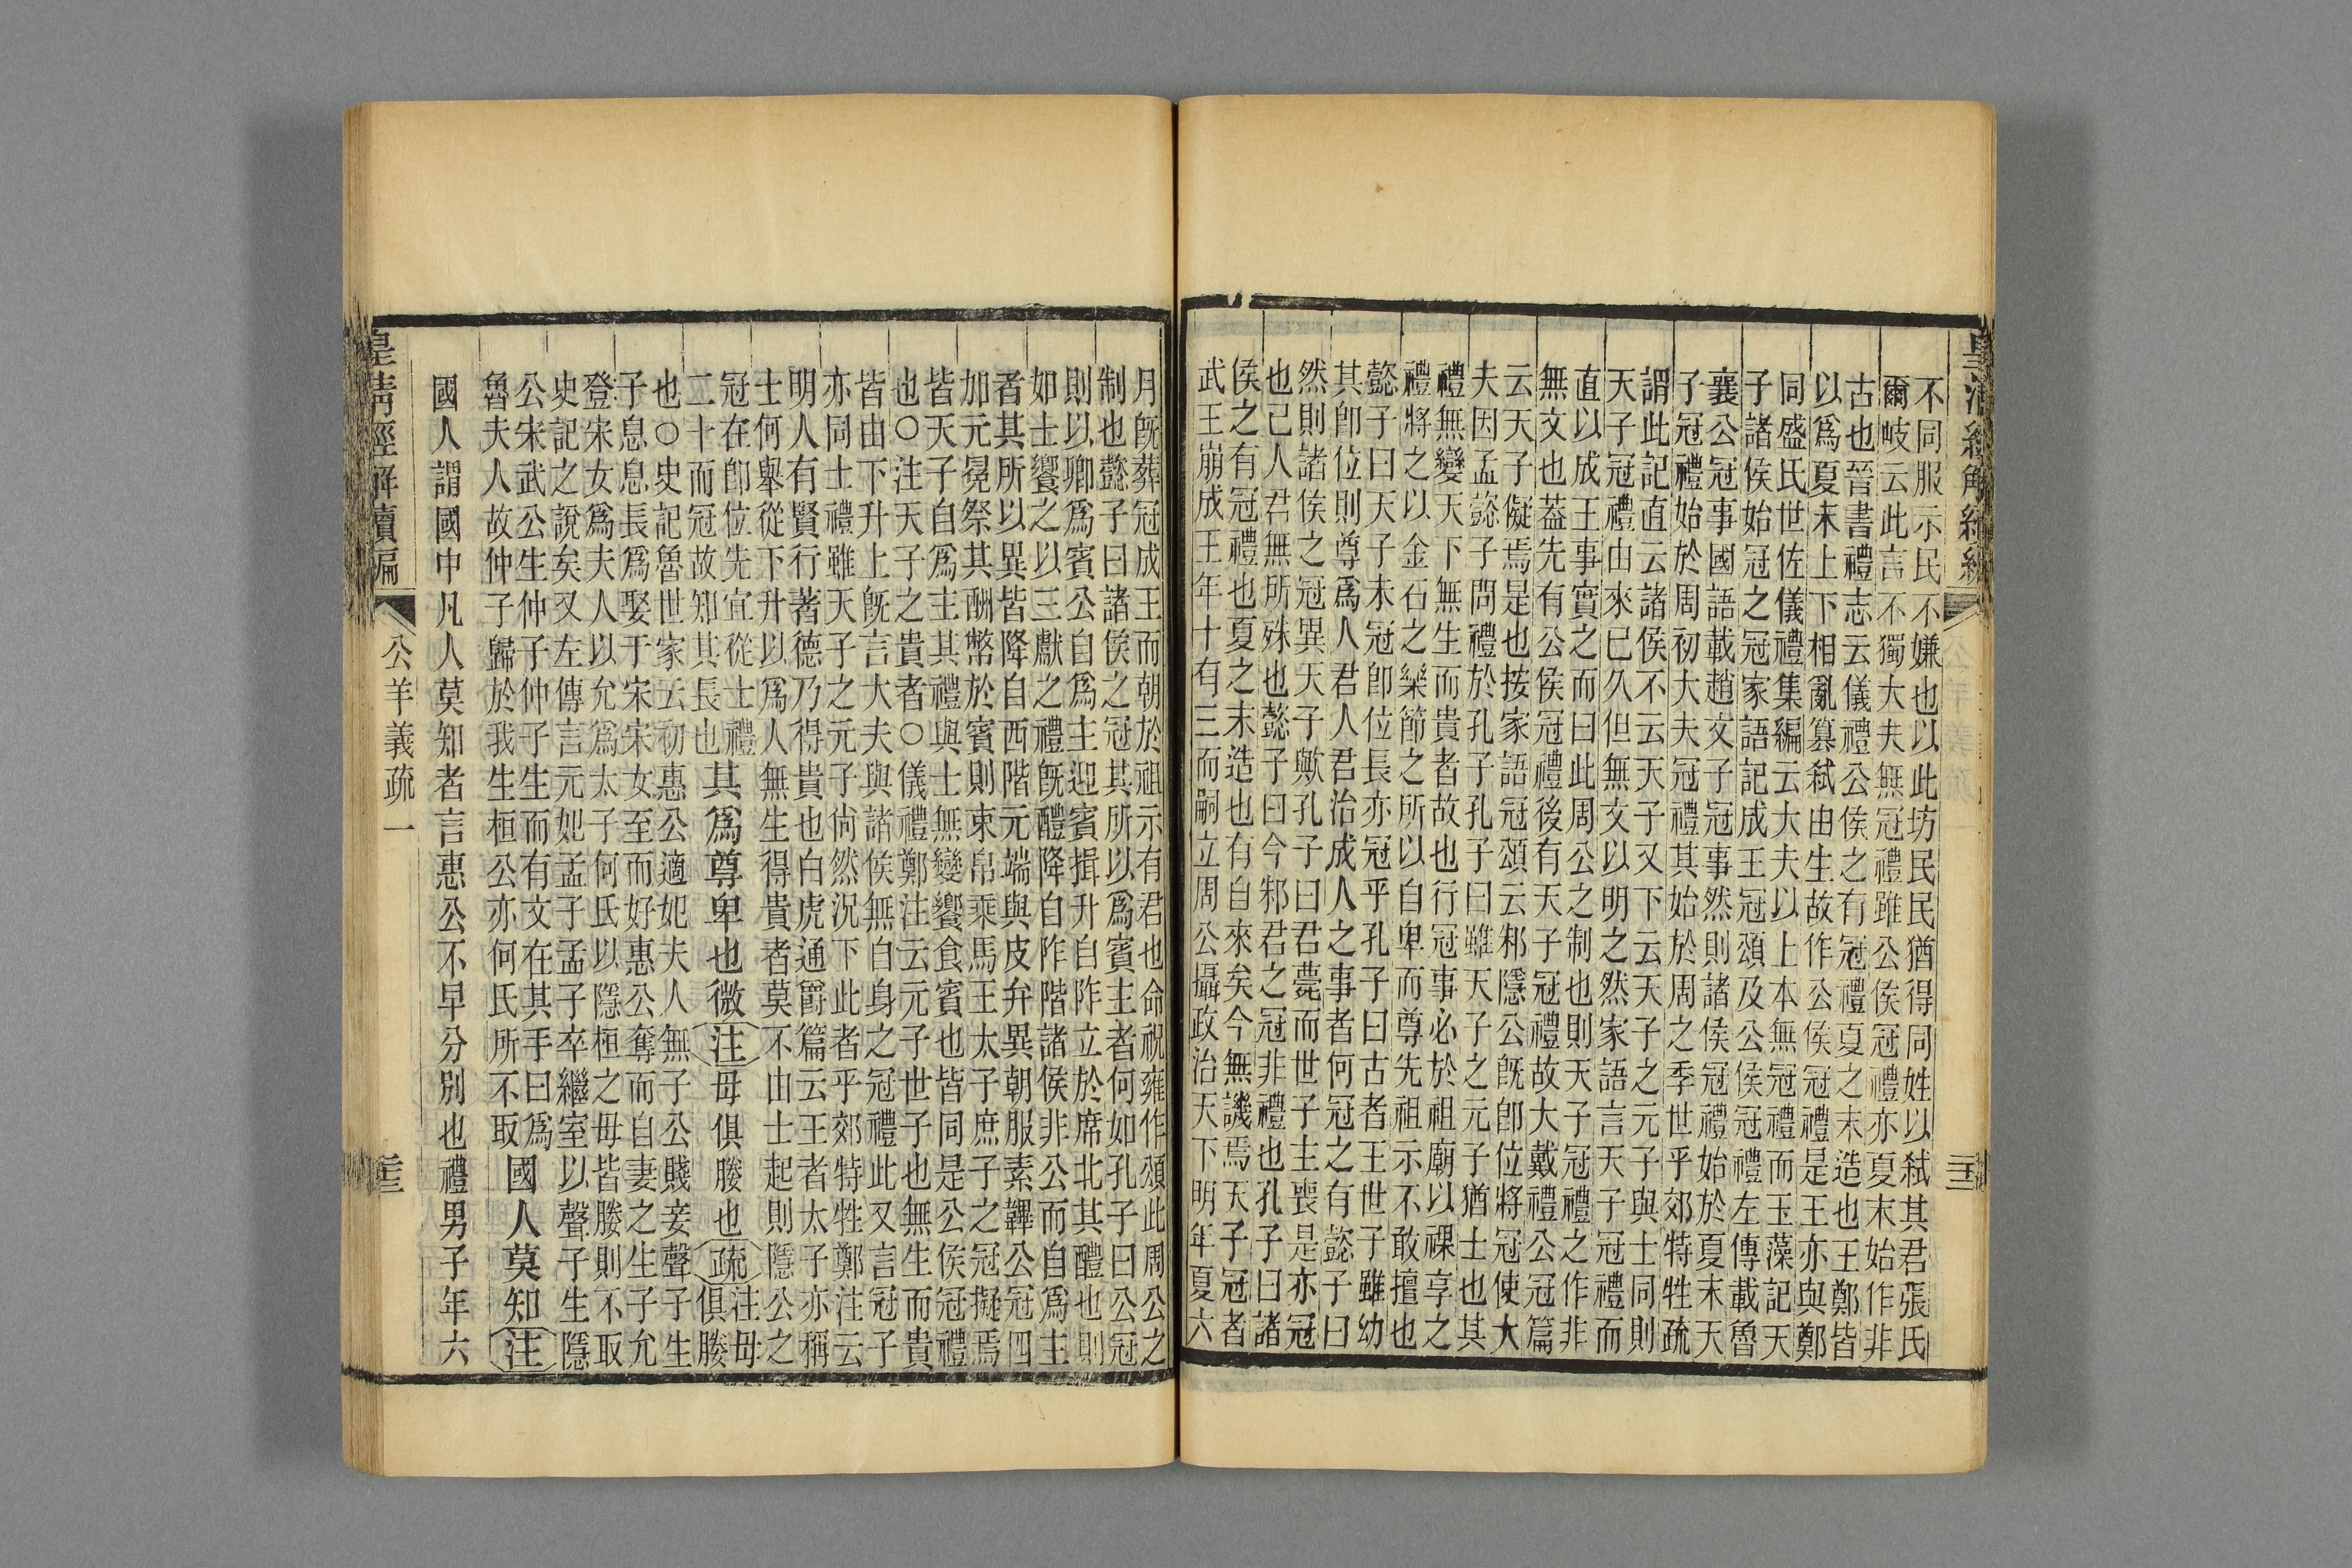 不同服示民不嫌也以此坊民民猶得同姓以弒其君張氏
爾岐云此言不獨大夫無冠禮雖公侯冠禮亦夏末始作非
古也晉書禮志云儀禮公侯之有冠禮夏之末造也王鄭皆
以爲夏末上下相亂篡弒由生故作公侯冠禮是王亦與鄭
同盛氏世佐儀禮集編云大夫以上本無冠禮而玉藻記天
子諸侯始冠之冠家語記成王冠頌及公侯冠禮左傳載魯
襄公冠事國語載趙文子冠事然則諸侯冠禮始於夏末天
子冠禮始於周初大夫冠禮其始於周之季世乎郊特牲疏
謂此記直云諸侯不云天子又下云天子之元子與士同則
天子冠禮由來已久但無文以明之然家語言天子冠禮而
直以成王事實之而曰此周公之制也則天子冠禮之作非
無文也葢先有公侯冠禮後有天子冠禮故大戴禮公冠篇
云天子儗焉是也按家語冠頌云邾隱公旣卽位將冠使大
夫因孟懿子問禮於孔子孔子曰雖天子之元子猶士也其
禮無變天下無生而貴者故也行冠事必於祖廟以祼享之
禮將之以金石之樂節之所以自卑而尊先祖示不敢擅也
懿子曰天子未冠卽位長亦冠乎孔子曰古者王世子雖幼
其卽位則尊爲人君人君治成人之事者何冠之有懿子曰
然則諸侯之冠異天子歟孔子曰君薨而世子主喪是亦冠
也已人君無所殊也懿子曰今邾君之冠非禮也孔子曰諸
侯之有冠禮也夏之末造也有自來矣今無譏焉天子冠者
武王崩成王年十有三而嗣立周公攝政治天下明年夏六
月旣葬冠成王而朝於祖示有君也命祝雍作頌此周公之
制也懿子曰諸侯之冠其所以爲賓主者何如孔子曰公冠
則以卿爲賓公自爲主迎賓揖升自阼立於席北其醴也則
如士饗之以三獻之禮旣醴降自阼階諸侯非公而自爲主
者其所以異皆降自西階元端與皮弁異朝服素韠公冠四
加元冕祭其酬幣於賓則束帛乘馬王太子庶子之冠擬焉
皆天子自爲主其禮與士無變饗食賓也皆同是公侯冠禮
也○注天子之貴者○儀禮鄭注云元子世子也無生而貴
皆由下升上旣言大夫與諸侯無自身之冠禮此又言冠子
亦同士禮雖天子之元子尙然況下此者乎郊特牲鄭注云
明人有賢行著德乃得貴也白虎通爵篇云王者太子亦稱
士何舉從下升以爲人無生得貴者莫不由士起則隱公之
冠在卽位先宜從士禮
二十而冠故知其長也其爲尊卑也微注母俱媵也疏注母
俱媵
也○史記魯世家云初惠公適妃夫人無子公賤妾聲子生
子息息長爲娶于宋宋女至而好惠公奪而自妻之生子允
登宋女爲夫人以允爲太子何氏以隱桓之母皆媵則不取
史記之說矣又左傳言元妃孟子孟子卒繼室以聲子生隱
公宋武公生仲子仲子生而有文在其手曰爲
魯夫人故仲子歸於我生桓公亦何氏所不取國人莫知注
國人謂國中凡人莫知者言惠公不早分別也禮男子年六
皇淸經解續編
公羊義疏一